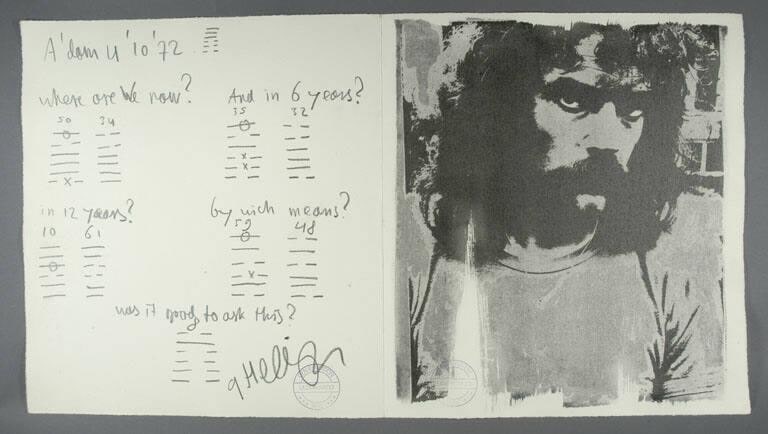 A'dam 4'10'72
where are we now?
50 34
And in 6 years?
35 32
in 12 years?
10 61
by wich means?
59 48
was it good to ask this?